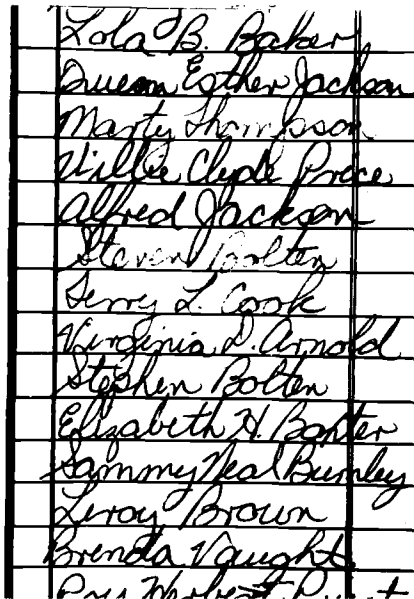 Lola B. Baker
Queen Esther Jackson
Marty Thompson
Willie Clyde Price
Alfred Jackson
Steven Bolten
Jerry L. Cook
Virginia D. Arnold
Stephen Bolten
Elizabeth H. Baxter
Sammy Neal Burnley
Leroy Brown
Brenda Vaught
Herbert